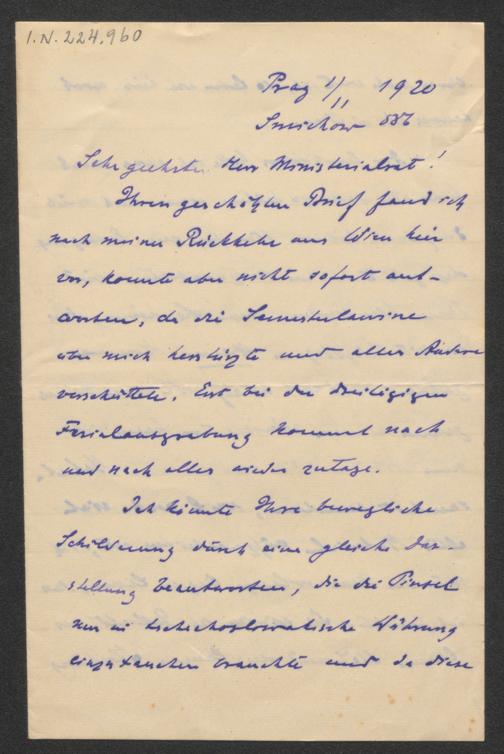 I.N. 224.960
Prag 1/11 1920
Smichow 886
Sehr geehrter Herr Ministerialrat!
Ihren geschätzten Brief fand ich
nach meiner Rückkehr aus Wien hier
vor, konnte aber nicht sofort ant-
worten, da die Semesterlawine
über mich herstürzte und alles Andere
verschüttete. Erst bei der dreitägigen
Ferialausgrabung kommt nach
und nach alles wieder zutage.
Ich könnte Ihre bewegliche
Schilderung durch eine gleiche Dar-
stellung beantworten, die die Pinsel
nur in tschechoslowakische Währung
einzutauchen brauchte und da diese